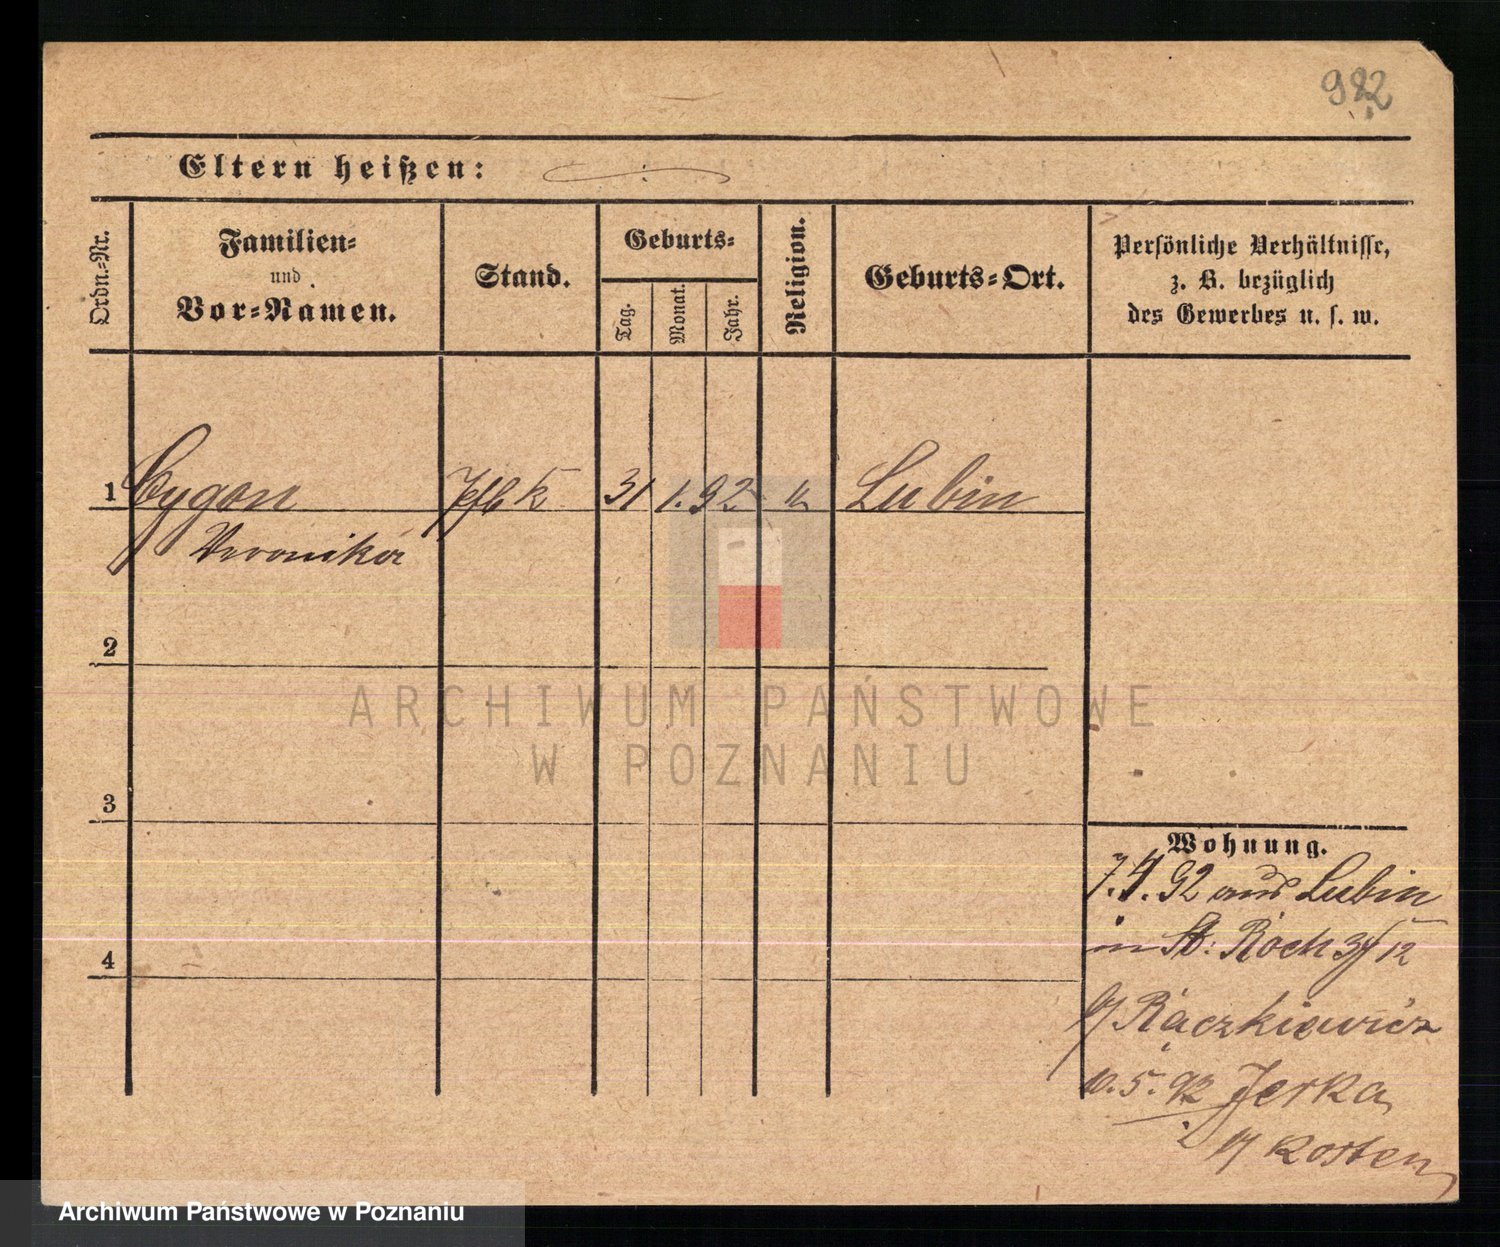 982
Eltern heißen:
Ordn.-Nr.
Familien-
und
Vor-Namen.
Stand.
Geburts-
Tag.
Monat.
Jahr.
Religion.
Geburts-Ort.
Persönliche Verhältnisse,
z. B. bezüglich
des Gewerbes u. s. w.
1 Cygan 31 1. 92 Lubin
Veronika
2
3
4
Wohnung.
7. 4. 92 aus Lubin
in St: Roch 3/12
b/ Rączkiewicz
10. 5. 92 Jerka
Kosten
ARCHIWUM PAŃSTWOWE
W POZNANIU
Archiwum Państwowe w Poznaniu